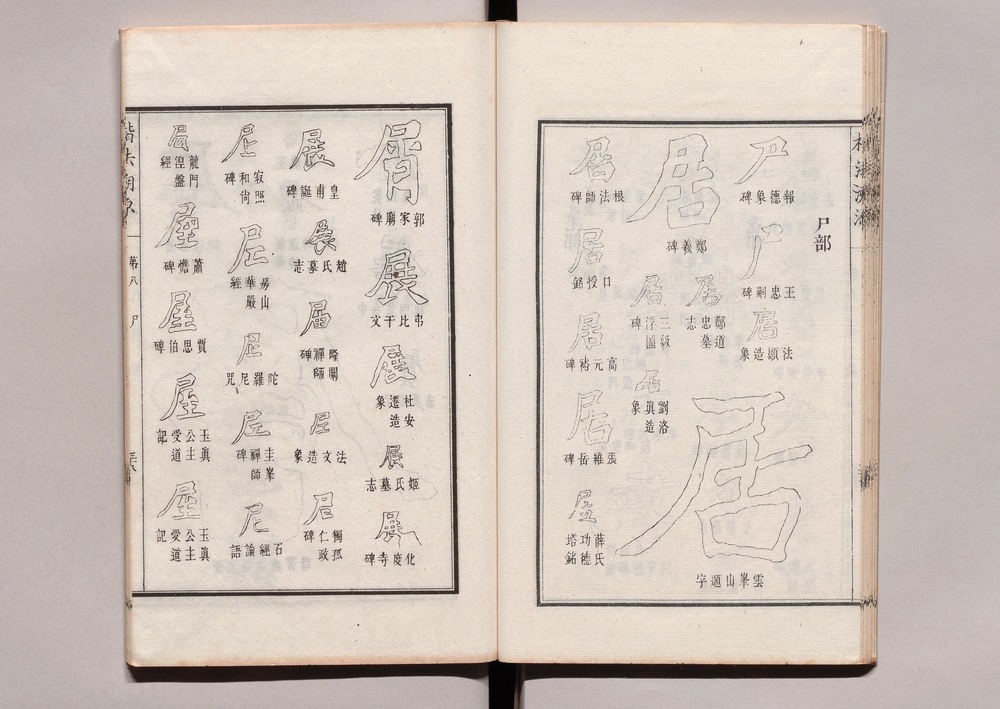 尸部
尸
報德象碑
尸
王忠嗣碑
居
法顗造象
居
鄭羲碑
居
鄭道忠墓志
居
三級浮圖碑
居
劉洛眞造象
居
雲峯山題字
居
根法師碑
居
口授銘
居
高元裕碑
居
張維岳碑
薛氏功德塔銘
屑
郭家廟碑
展
弔比干文
展
杜安遷造象
展
姬氏墓志
展
化度寺碑
展
皇甫誕碑
展
趙氏墓志
屆
隆闡禪師碑
尼
法文造象
尼
獨孤仁政碑
尼
寂照和尙碑
尼
房山華嚴經
尼
陀羅尼咒
尼
圭峯禪師碑
尼
石經論語
龍門涅盤經
屋
蕭憺碑
屋
賈思伯碑
屋
玉眞公主受道記
屋
玉眞公主受道記
第八
尸